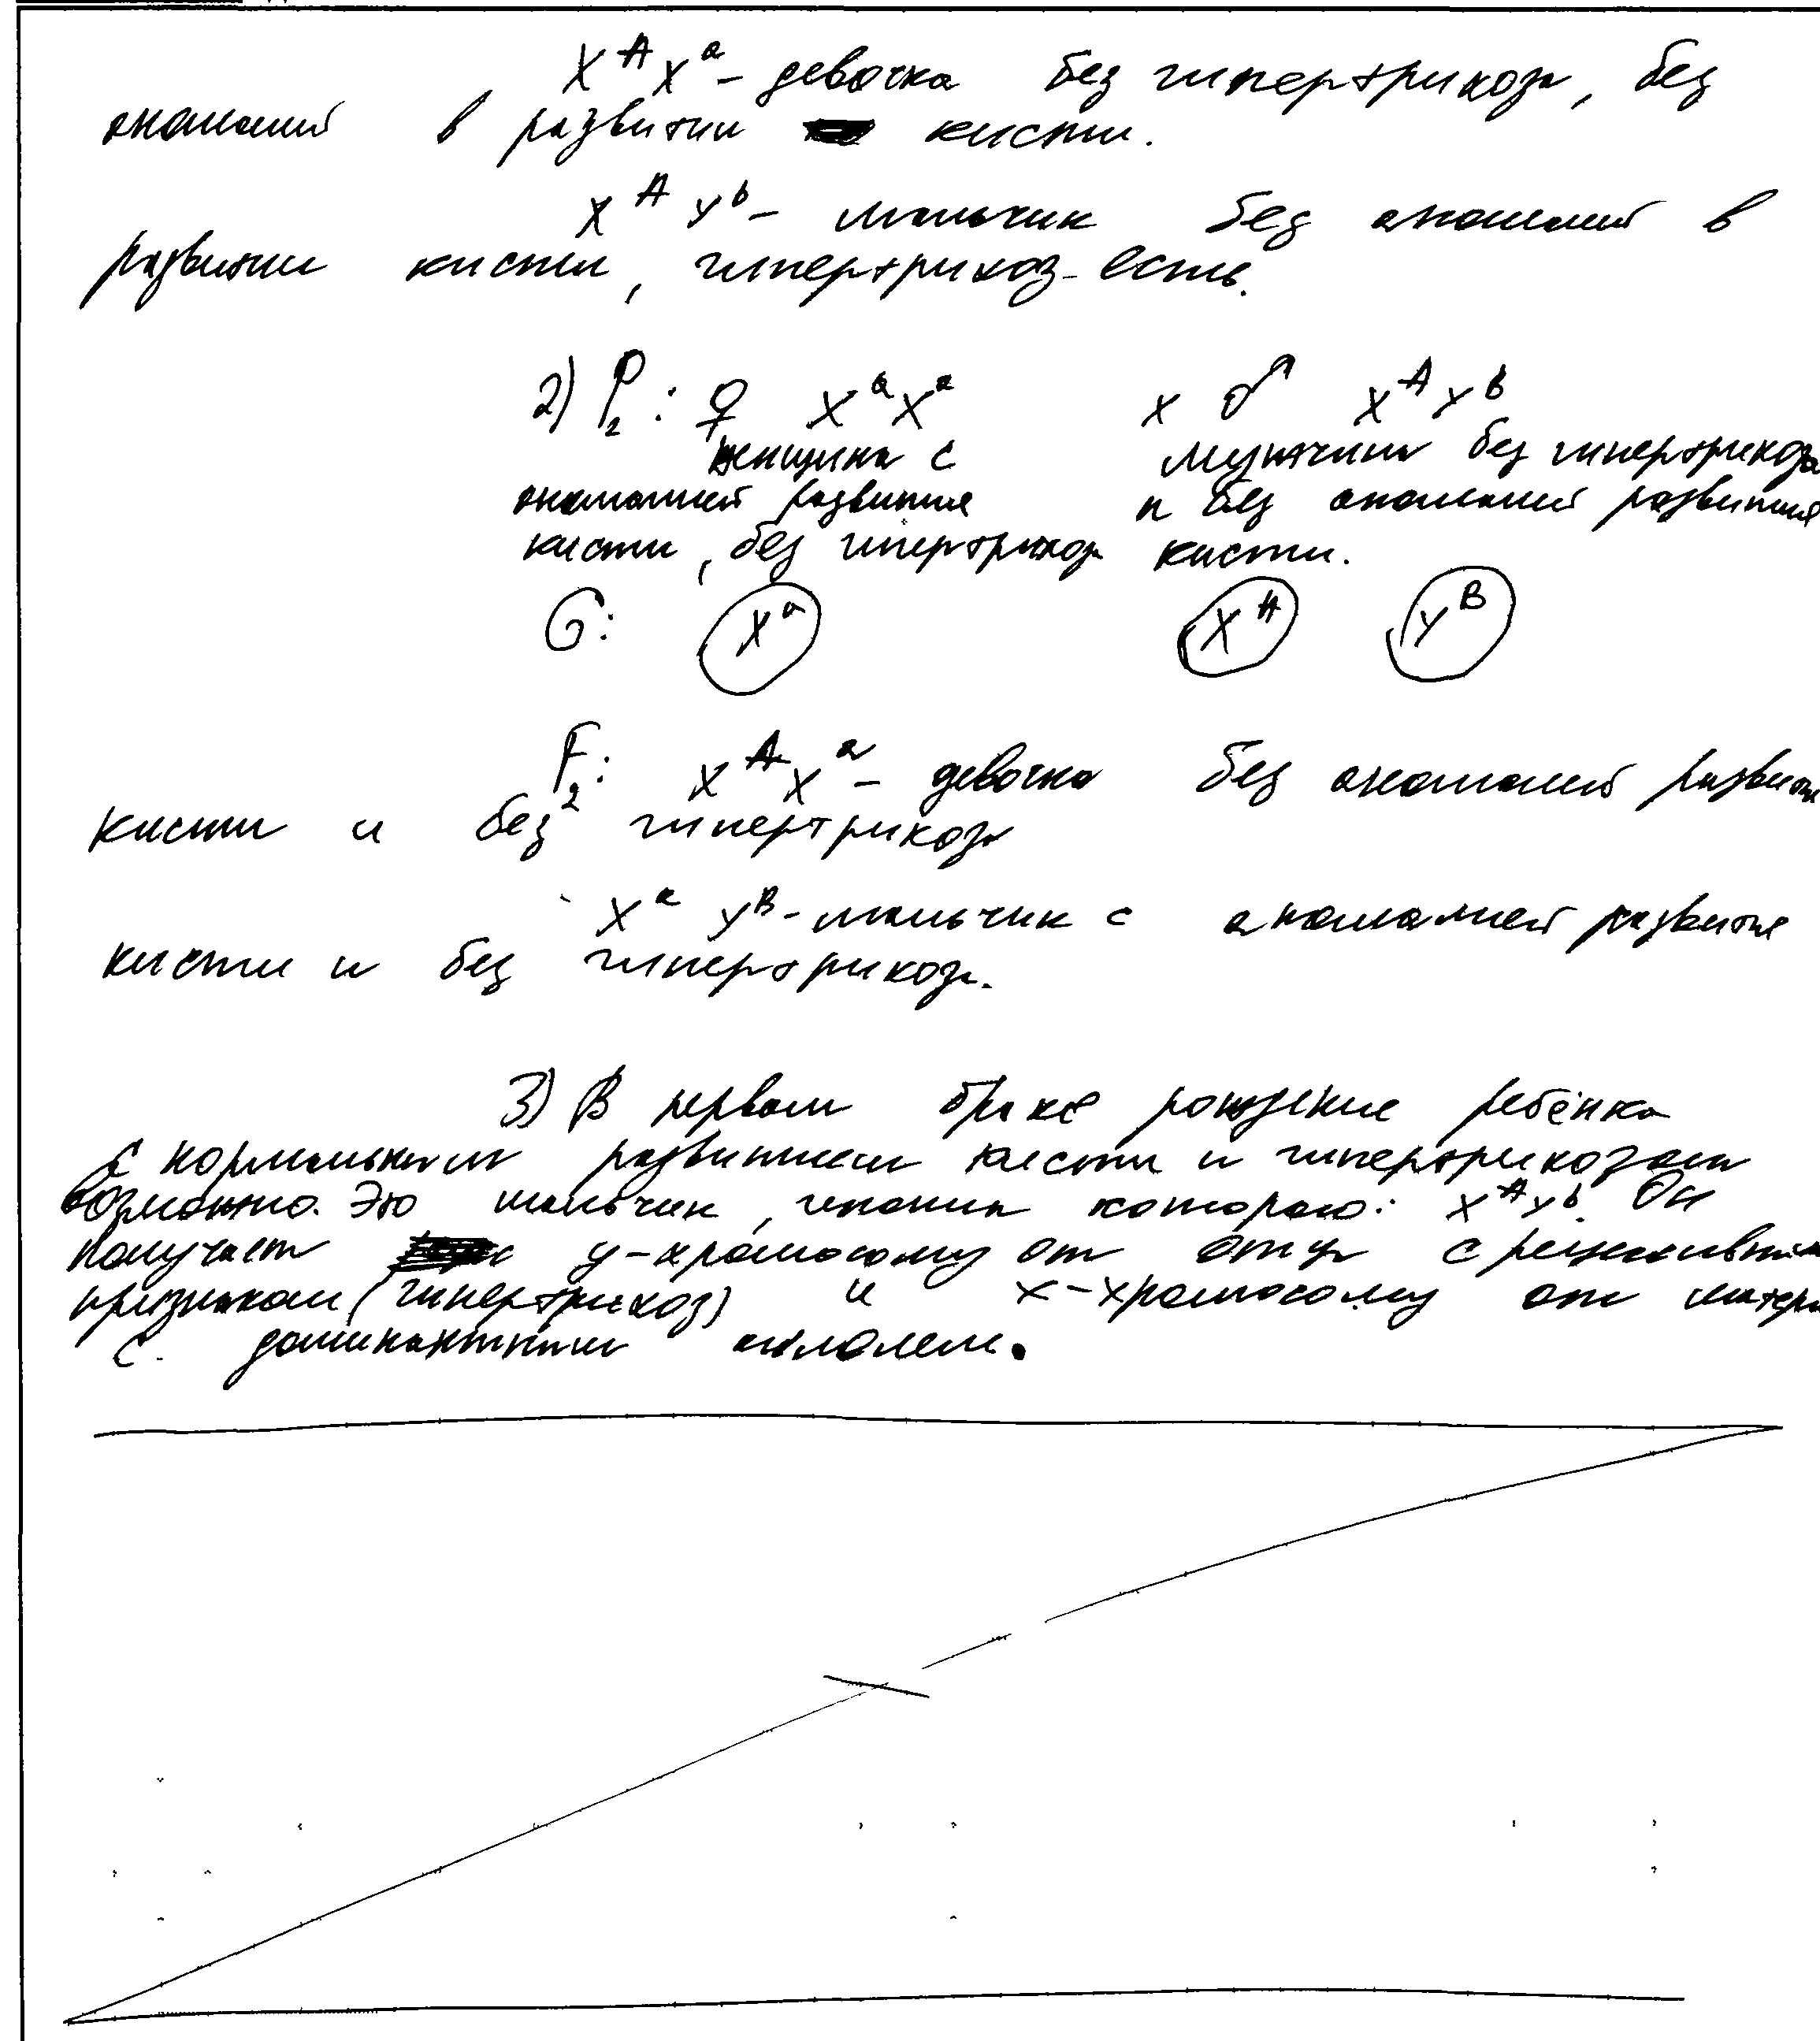 X^A X^a - девочка без гипертрихоза, без
аномалий в развитии кисти.
X^A Y^b - мальчик без аномалий в
развитии кисти, гипертрихоз - есть.
2) P₂: ♀ X^a X^a x ♂ X^A Y^b
женщина с мужчина без гипертрихоза
аномалией развития и без аномалий развития
кисти, без гипертрихоза кисти.
G: X^a X^A Y^B
F₂: X^A X^a - девочка без аномалий развития
кисти и без гипертрихоза
X^a Y^B - мальчик с аномалией развития
кисти и без гипертрихоза.
3) В первом браке рождение ребёнка
с нормальным развитием кисти и гипертрихозом
возможно. Это мальчик, генотип которого: X^A Y^b. Он
получает y-хромосому от отца с рецессивным
признаком (гипертрихоз) и x-хромосому от матери
с доминантным аллелем.